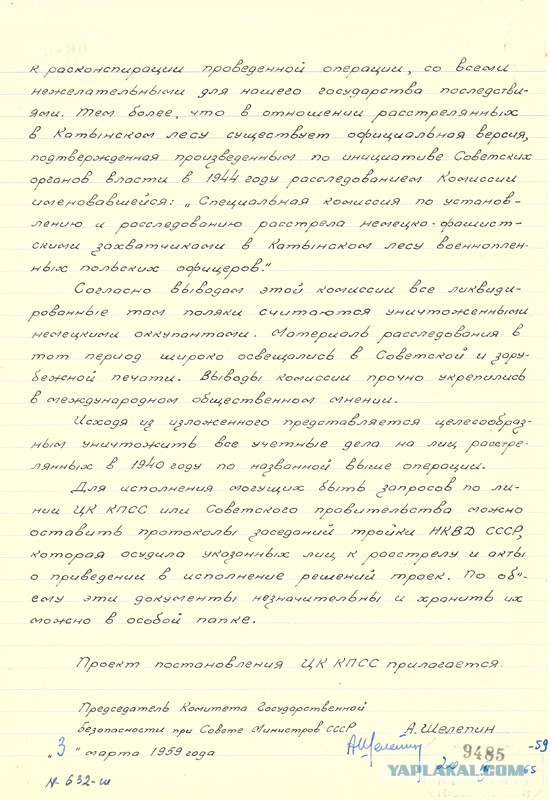 к расконспирации проведенной операции, со всеми
нежелательными для нашего государства последстви-
ями. Тем более, что в отношении расстрелянных
в Катынском лесу существует официальная версия,
подтвержденная произведенным по инициативе Советских
органов власти в 1944 году расследованием Комиссии
именовавшейся: „Специальная комиссия по установ-
лению и расследованию расстрела немецко-фашист-
скими захватчиками в Катынском лесу военноплен-
ных польских офицеров."
Согласно выводам этой комиссии все ликвиди-
рованные там поляки считаются уничтоженными
немецкими оккупантами. Материалы расследования в
тот период широко освещались в Советской и зару-
бежной печати. Выводы комиссии прочно укрепились
в международном общественном мнении.
Исходя из изложенного представляется целесообраз-
ным уничтожить все учетные дела на лиц расстре-
лянных в 1940 году по названной выше операции.
Для исполнения могущих быть запросов по ли-
нии ЦК КПСС или Советского правительства можно
оставить протоколы заседаний тройки НКВД СССР,
которая осудила указанных лиц к расстрелу и акты
о приведении в исполнение решений троек. По об"-
ему эти документы незначительны и хранить их
можно в особой папке.
Проект постановления ЦК КПСС прилагается.
Председатель Комитета Государственной
безопасности при Совете Министров СССР А. Шелепин
„3" марта 1959 года АШелепин 9485 -59
65
N-632-ш
YAPLAKAL.COM